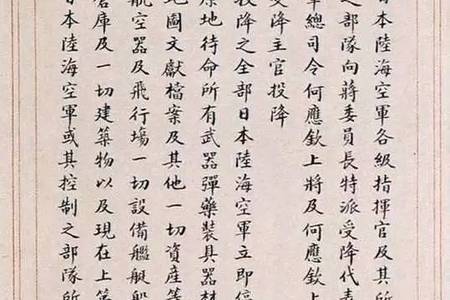 日本陸海空軍各級指揮官及其所
之部隊向蔣委員長特派受降代表
軍總司令何應欽上將及何應欽上
受降主官投降
投降之全部日本陸海空軍立即停
原地待命所有武器彈藥裝具器材
地圖文獻檔案及其他一切資產等
航空器及飛行場一切設備艦艇船
倉庫及一切建築物以及現在上第
日本陸海空軍或其控制之部隊所